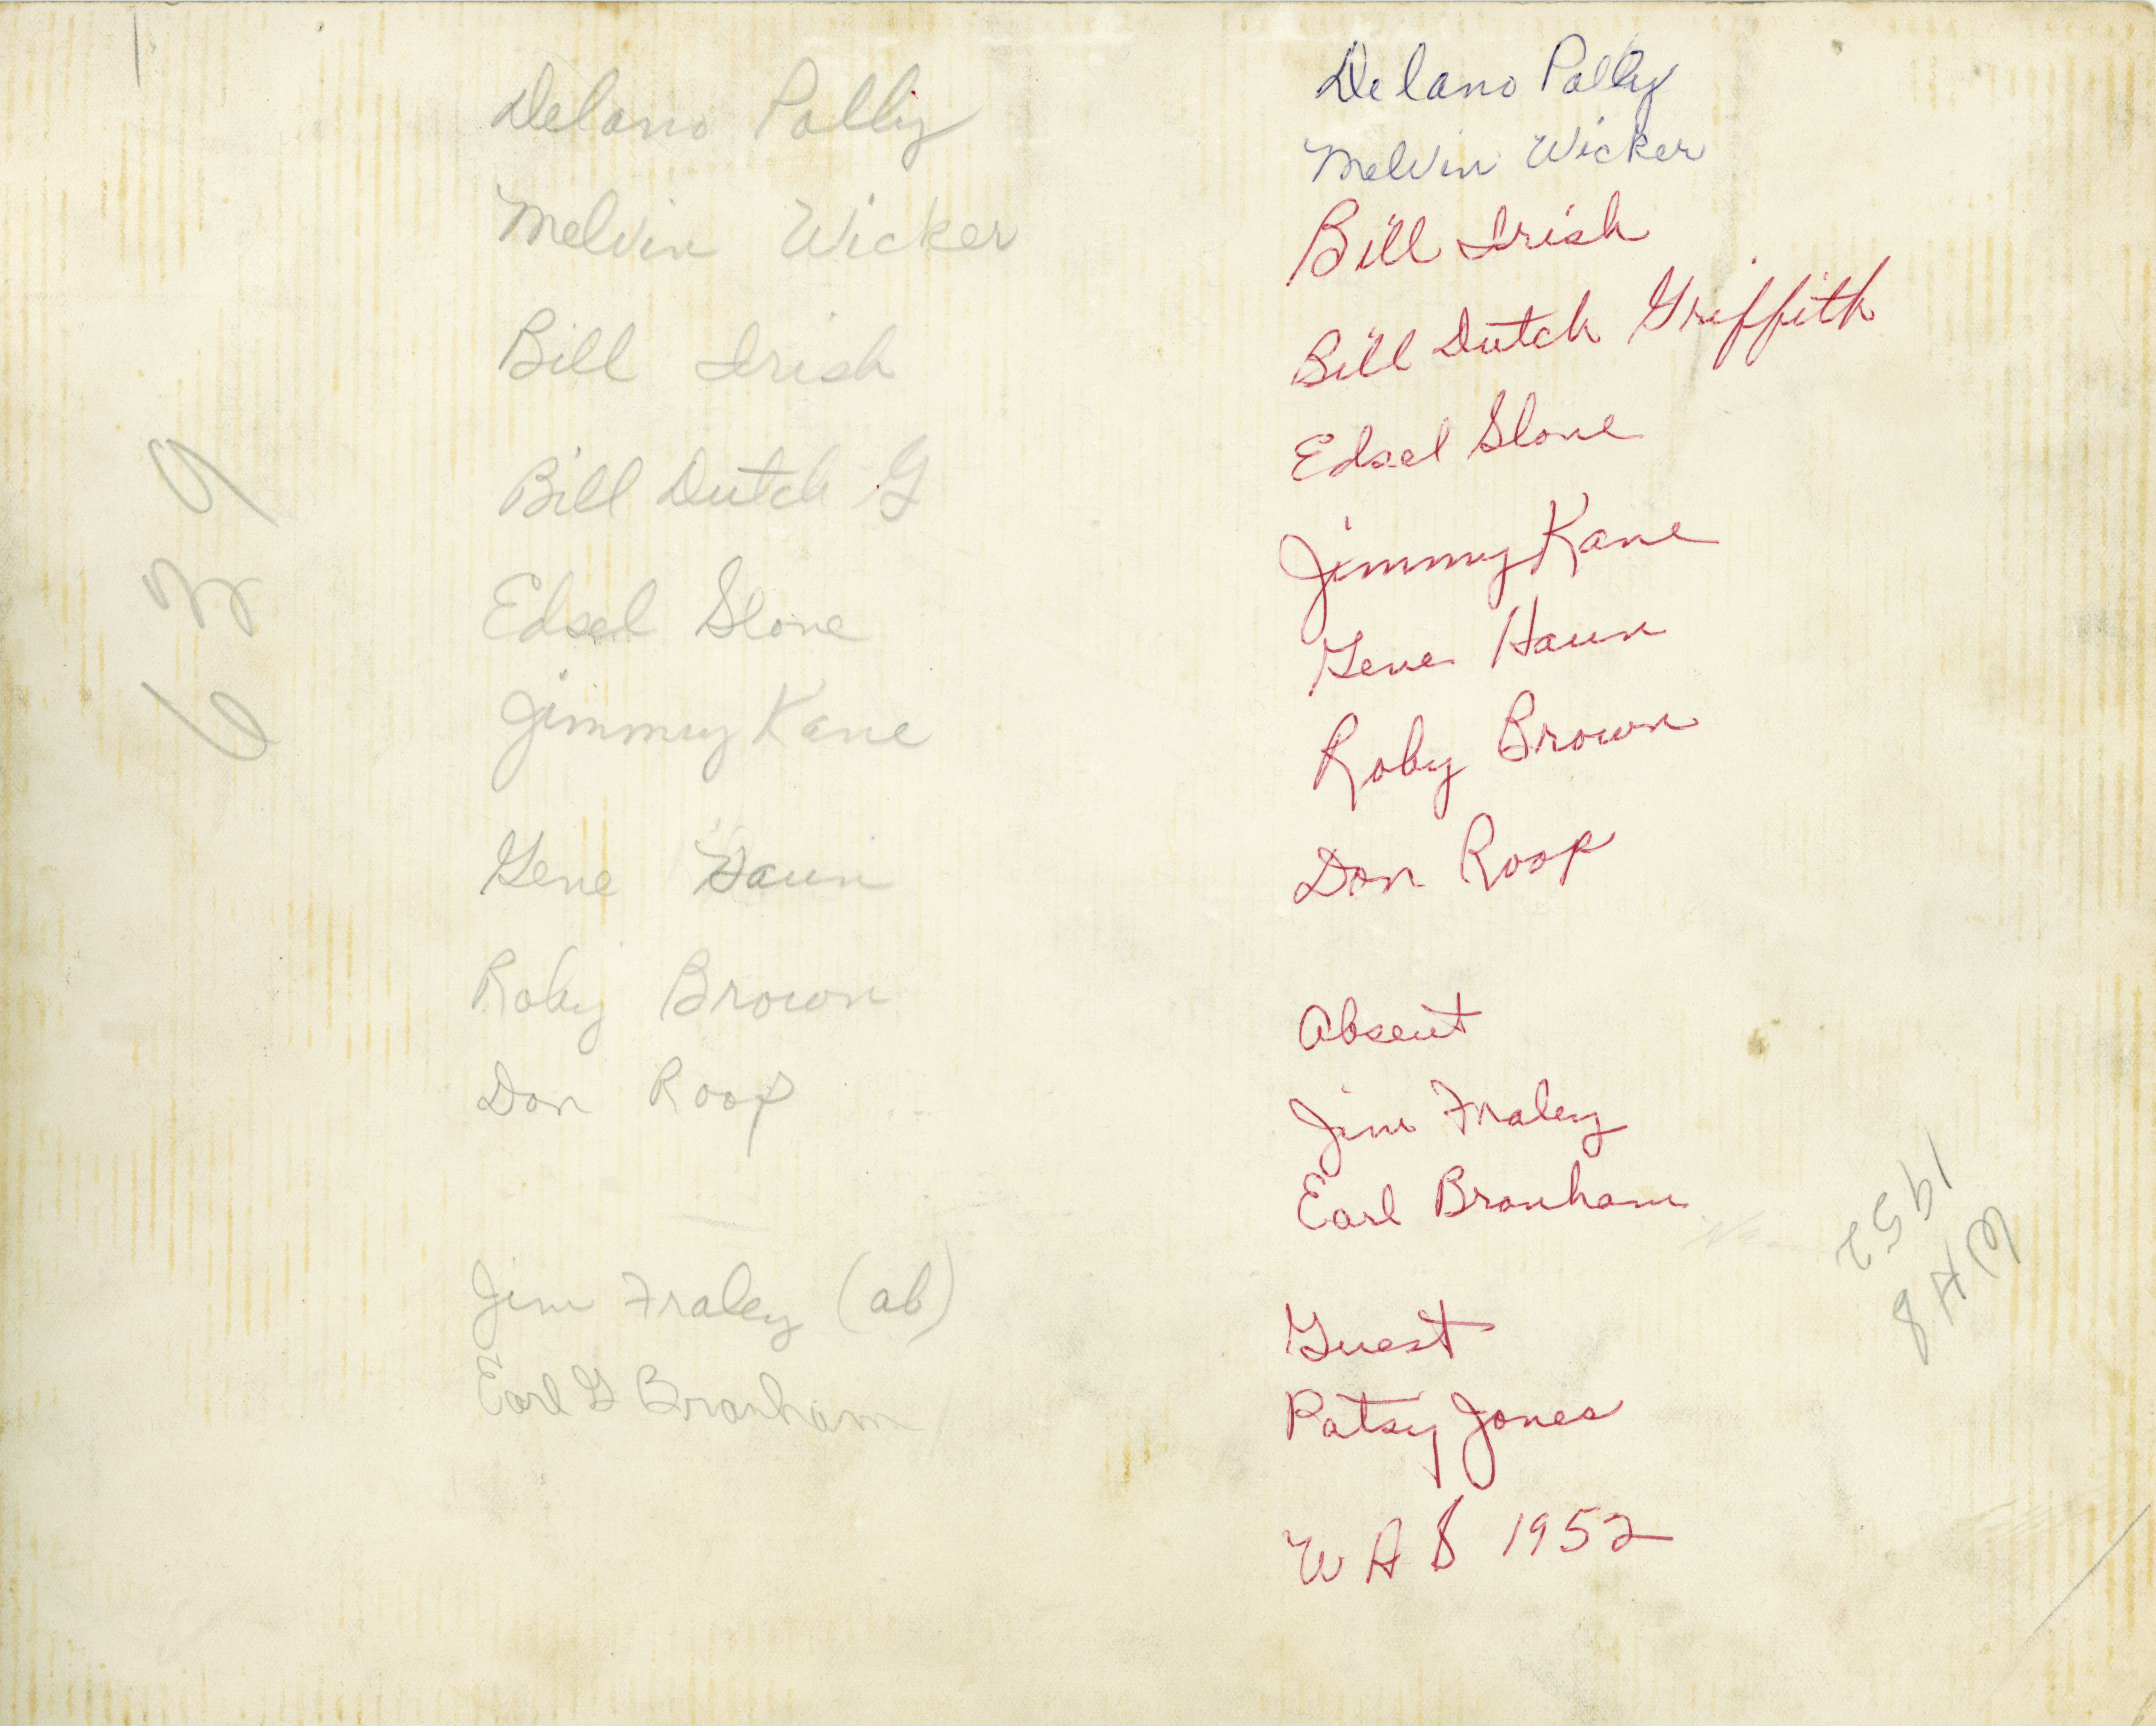 Delano Polly
Melvin Wicker
Bill Irish
Bill Dutch G
Edsel Slone
Jimmy Kane
Gene Haun
Roby Brown
Don Roop
Jim Fraley (ab)
Earl G Branham
639
Delano Polly
Melvin Wicker
Bill Irish
Bill Dutch Griffith
Edsel Slone
Jimmy Kane
Gene Haun
Roby Brown
Don Roop
Absent
Jim Fraley
Earl Branham
Guest
Patsy Jones
W A 8 1952
W A 8
1952